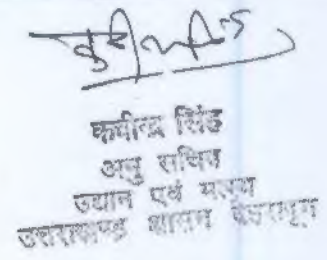 कवीन्द्र सिंह
अनु सचिव
उद्यान एवं
उत्तराखण्ड शासन देहरादून